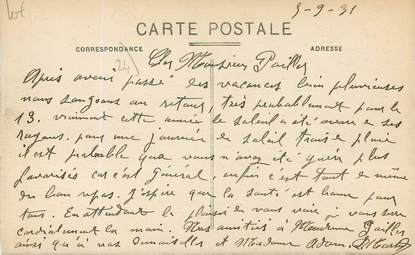 Lot
5-9-31
CARTE POSTALE
CORRESPONDANCE
ADRESSE
24)
Cher Monsieur Pailles
Après avoir passé les vacances bien pluvieuses
nous songeons au retour, très probablement pour le
13. vraiment cette année le soleil a été avare en ses
rayons. pour une journée de soleil trois de pluie
il est probable que vous n'avez été guère plus
favorisés car c'est général, enfin c'est tout de même
du bon repos. J'espère que la santé est bonne pour
tous. En attendant le plaisir de vous voir, vous serre
cordialement la main. Nos amitiés à Madame Pailles
ainsi qu'à vos Demoiselles et Madame Adam.